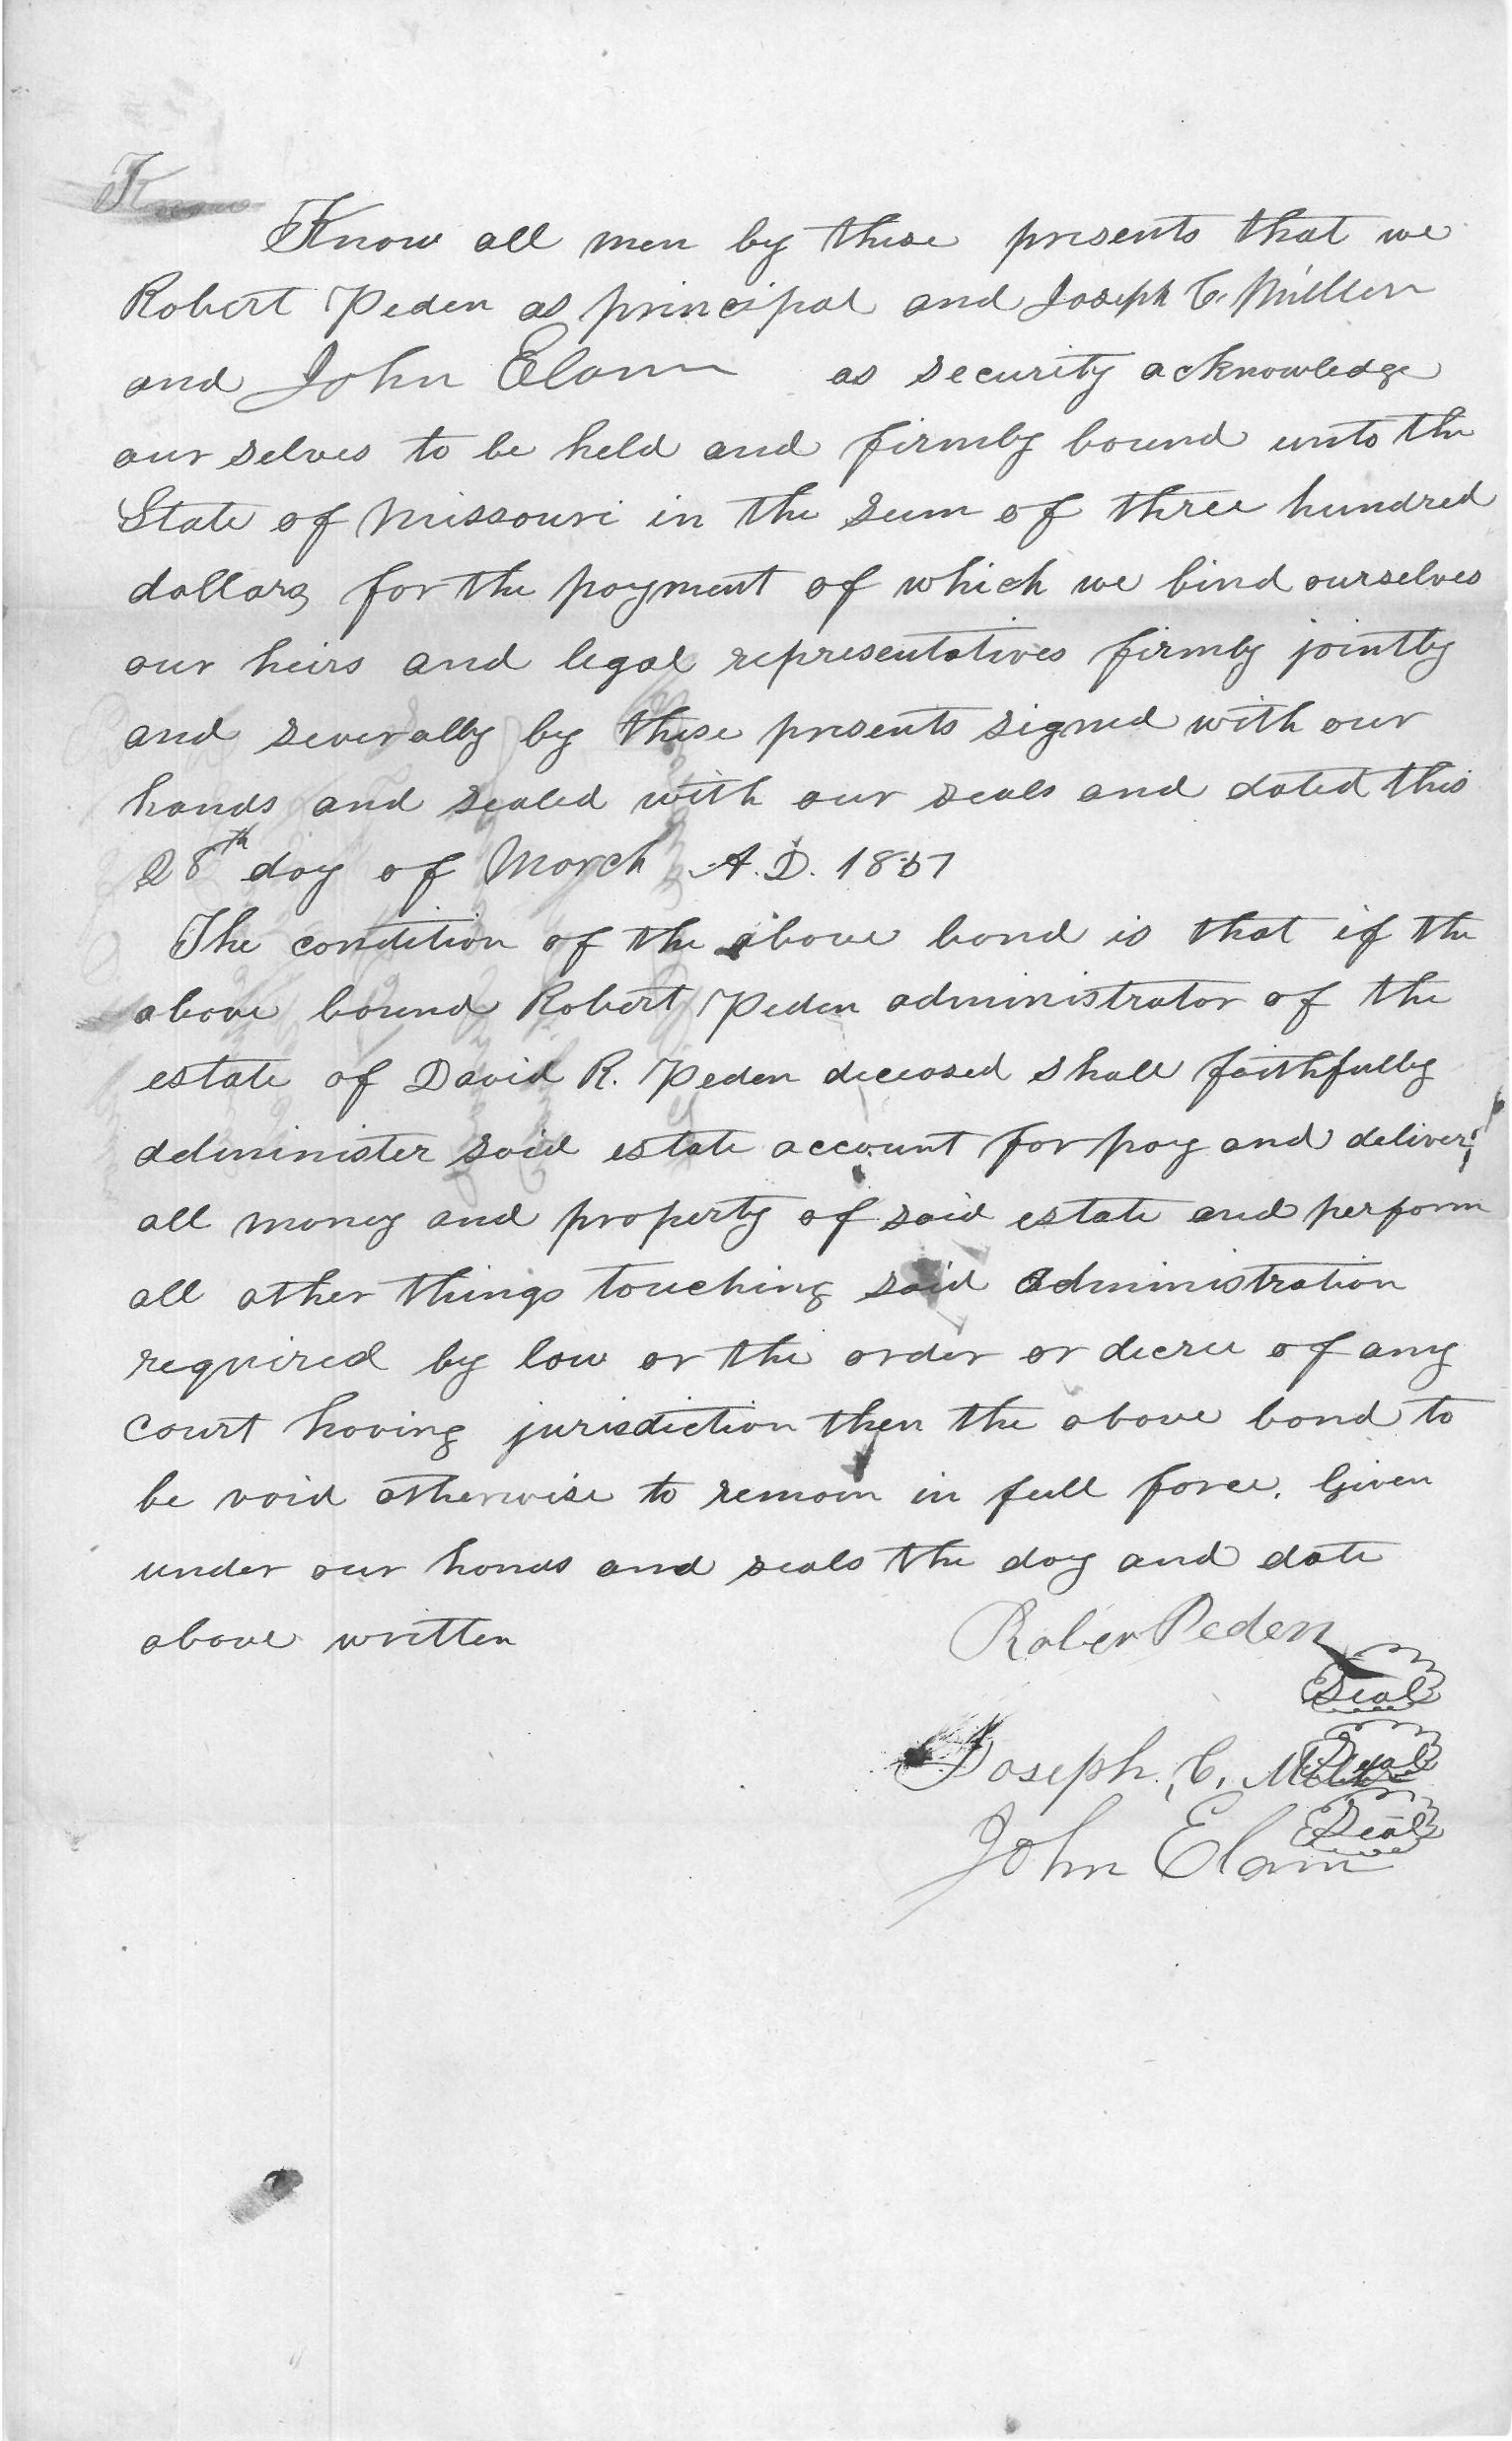 Know
Know all men by these presents that we
Robert Peden as principal and Joseph C. Miller
and John Elam as security acknowledge
our selves to be held and firmly bound unto the
State of Missouri in the sum of three hundred
dollars for the payment of which we bind ourselves
our heirs and legal representatives firmly jointly
and severally by these presents signed with our
hands and sealed with our seals and dated this
28th day of March A.D.
The condition of the above bond is that if the
above bound Robert Peden administrator of the
estate of David R. Peden deceased shall faithfully
administer said estate account for pay and deliver
all money and property of said estate and perform
all other things touching said administration
required by law or the order or decree of any
court having jurisdiction then the above bond to
be void otherwise to remain in full force. Given
under our hands and seals the day and date
above written
Rober Peden
Seal
Joseph. C. Miller Seal
John Elam Seal